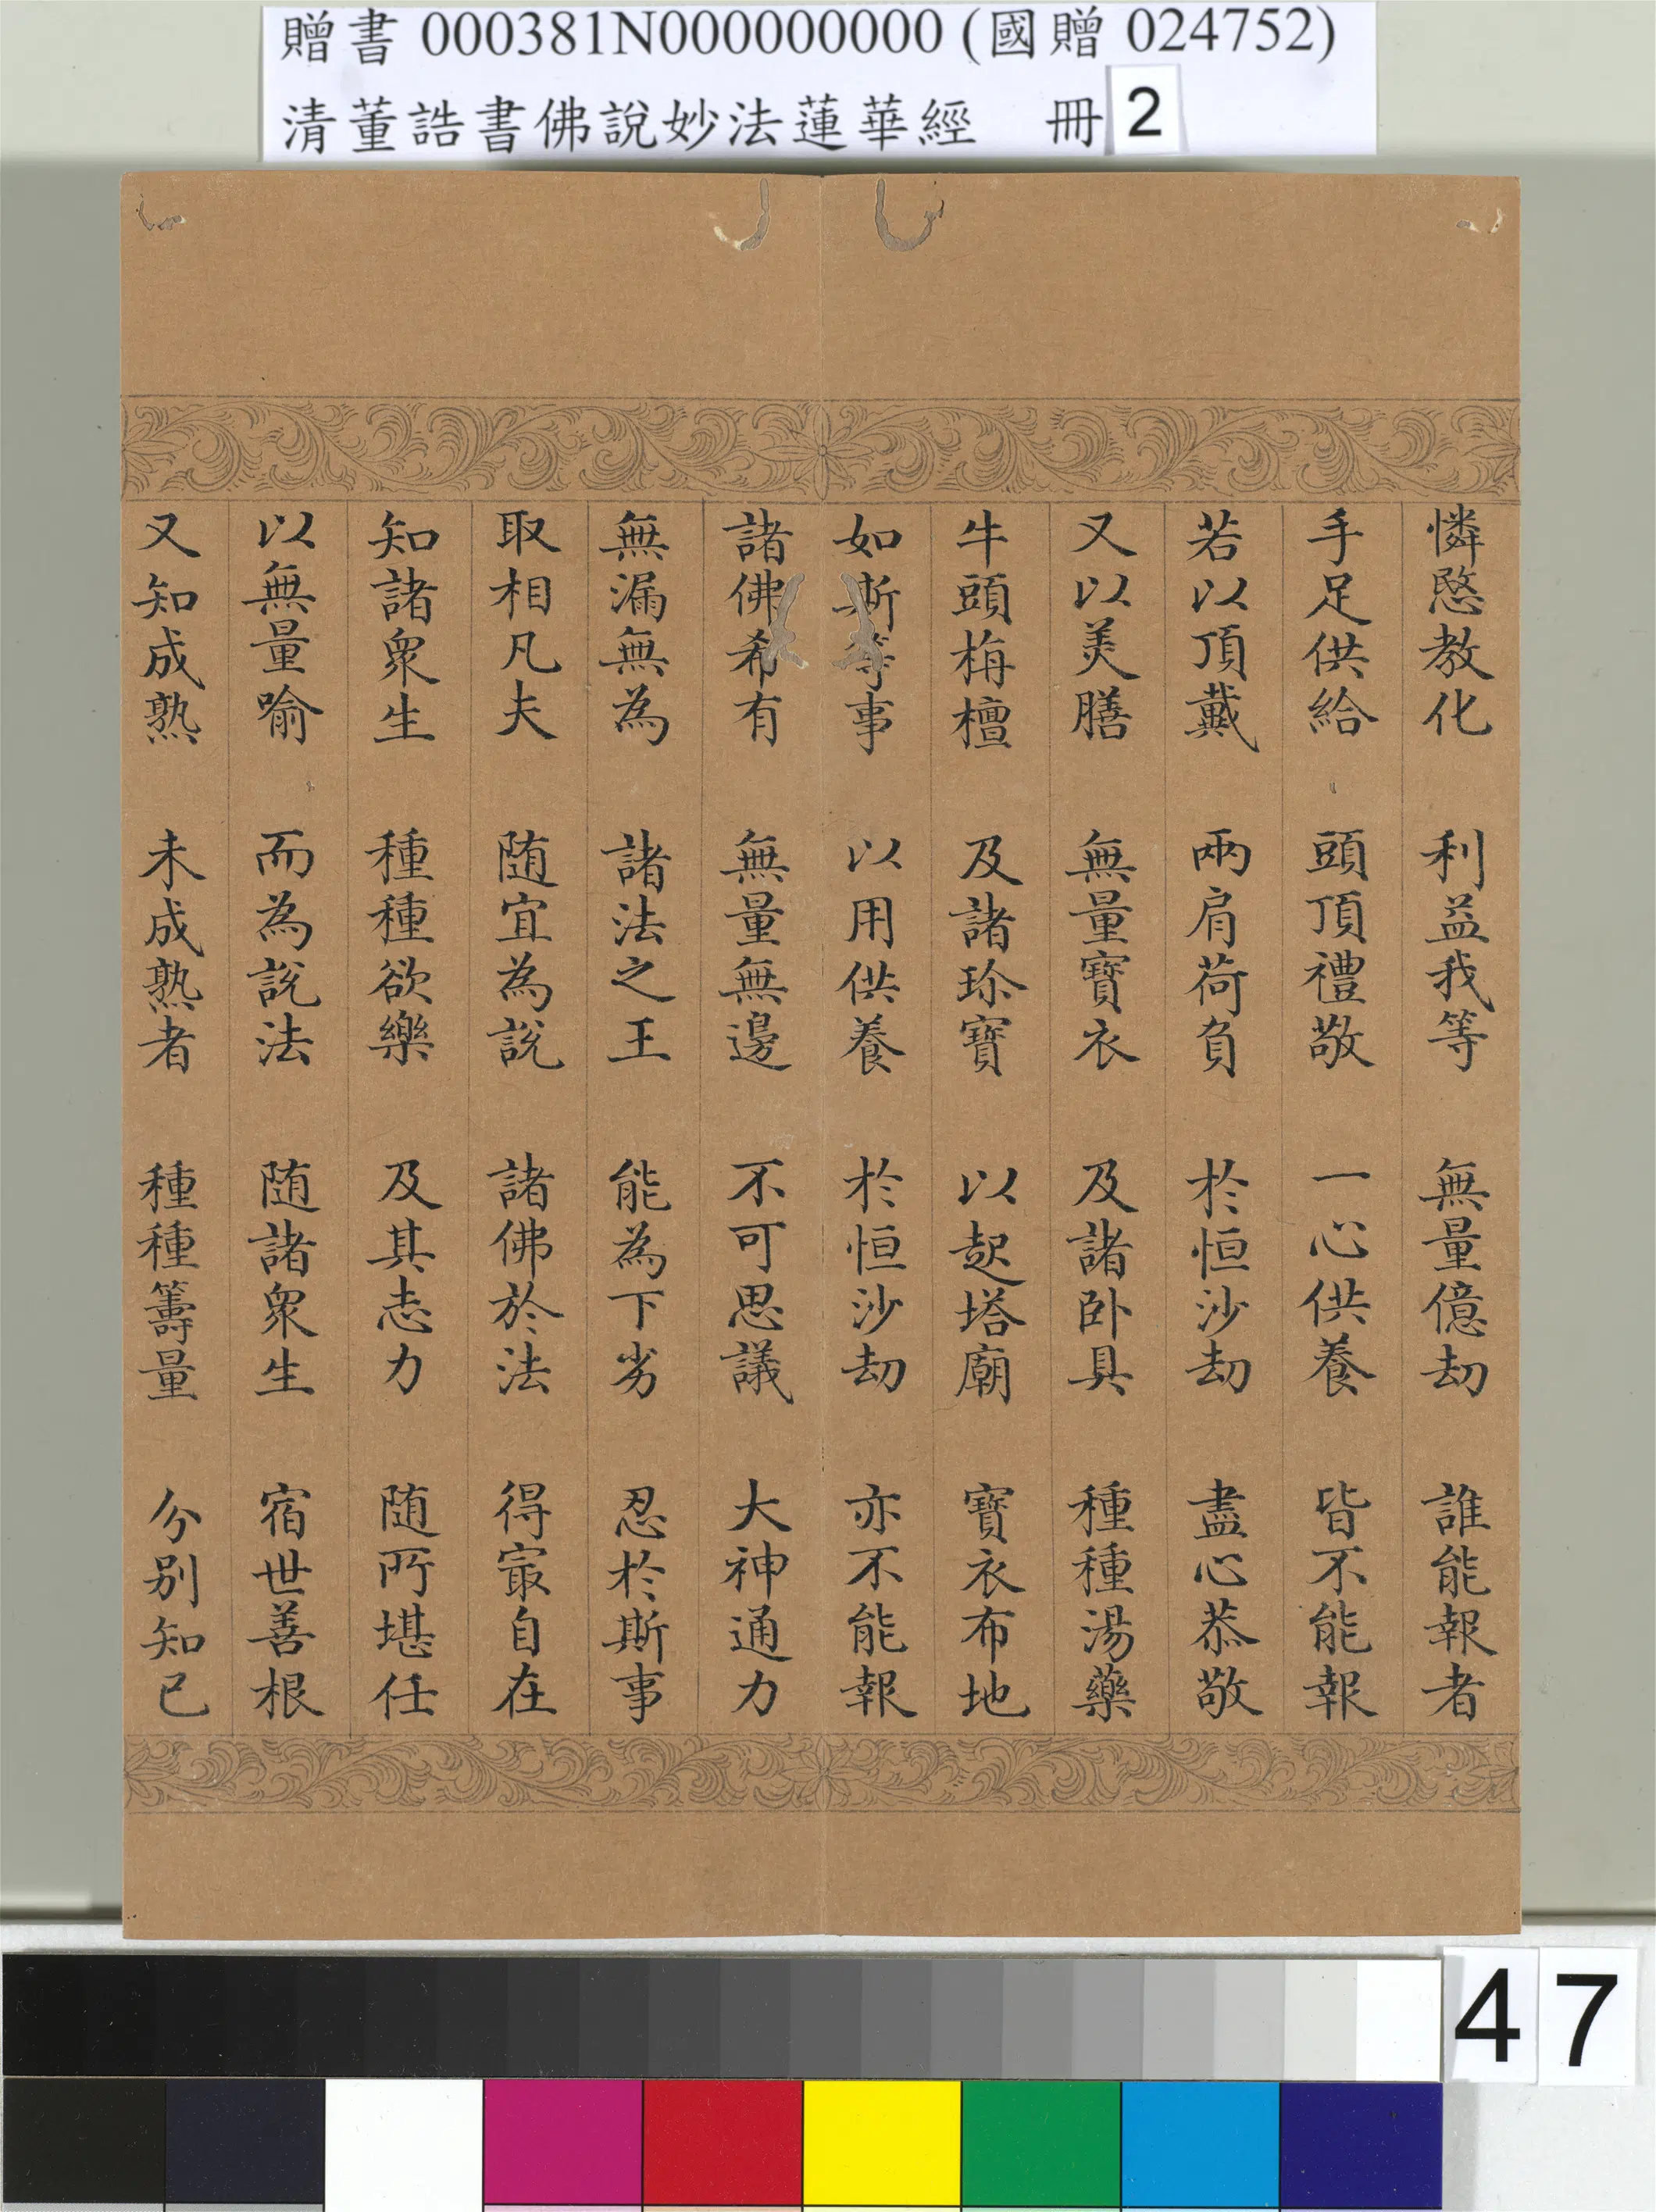 贈書 000381N000000000 (國贈 024752)
清董誥書佛說妙法蓮華經 冊 2
憐愍教化 利益我等 無量億劫 誰能報者
手足供給 頭頂禮敬 一心供養 皆不能報
若以頂戴 兩肩荷負 於恒沙劫 盡心恭敬
又以美膳 無量寶衣 及諸卧具 種種湯藥
牛頭栴檀 及諸珎寶 以起塔廟 寶衣布地
如斯等事 以用供養 於恒沙劫 亦不能報
諸佛希有 無量無邊 不可思議 大神通力
無漏無為 諸法之王 能為下劣 忍於斯事
取相凡夫 随宜為說 諸佛於法 得㝡自在
知諸衆生 種種欲樂 及其志力 随所堪任
以無量喻 而為說法 随諸衆生 宿世善根
又知成熟 未成熟者 種種籌量 分別知已
47